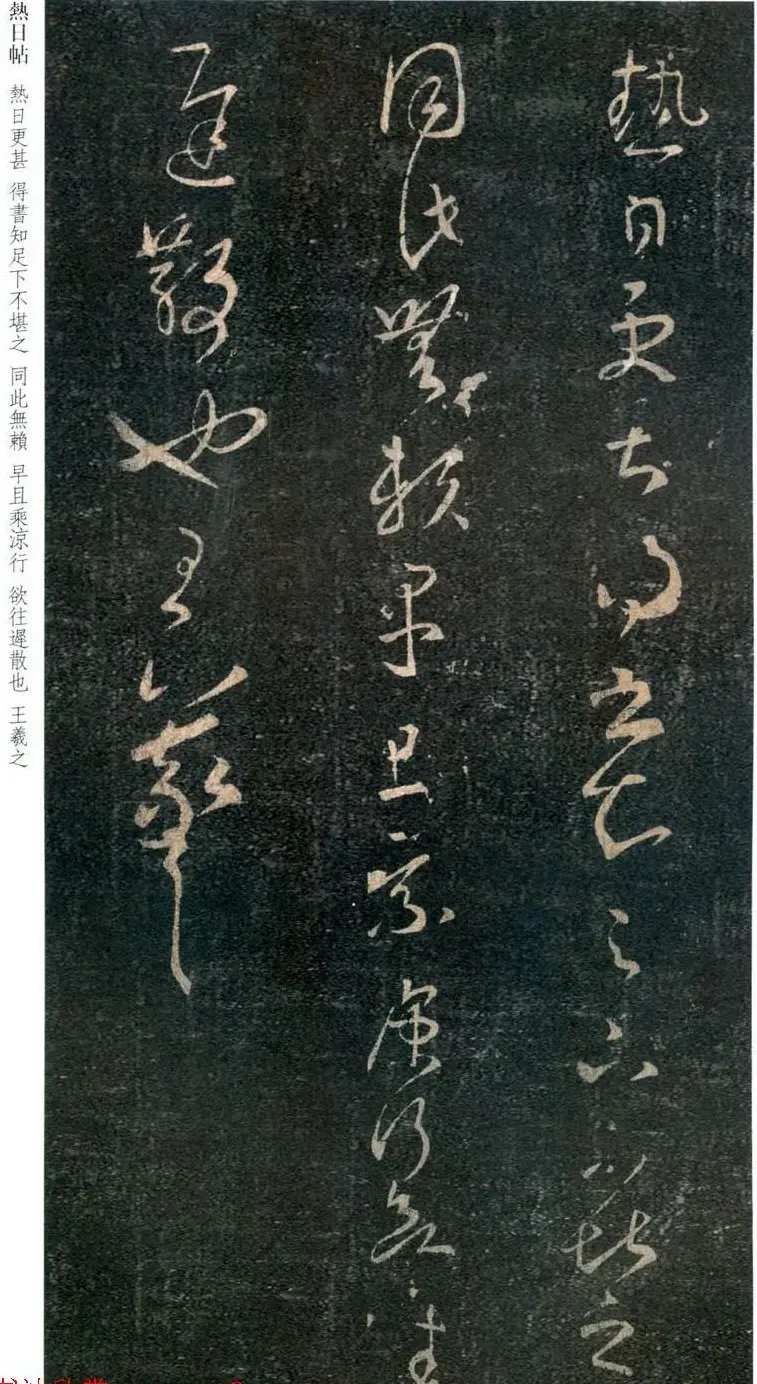 熱日更甚得書知足下不堪之
同此無賴早且乘涼行欲往
遲散也王羲之
熱日帖 熱日更甚 得書知足下不堪之 同此無賴 早且乘涼行 欲往遲散也 王羲之